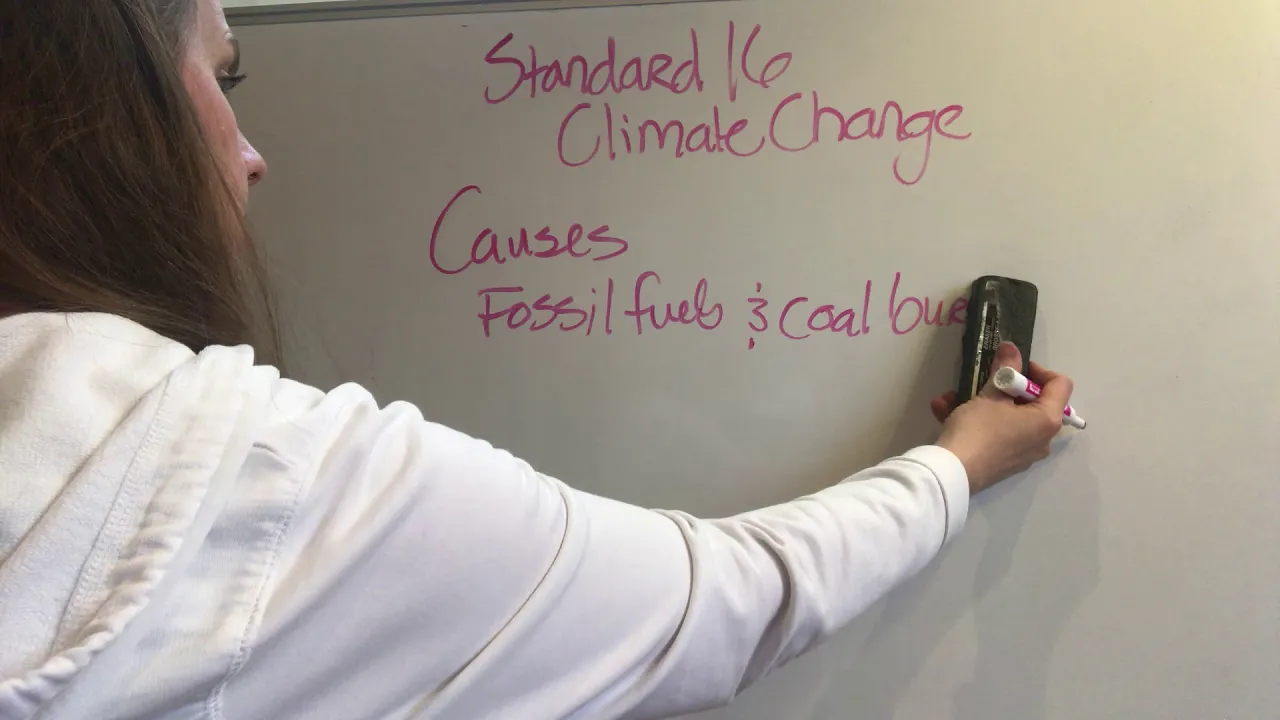 Standard 16
Climate Change
Causes
Fossil fuels & coal bur